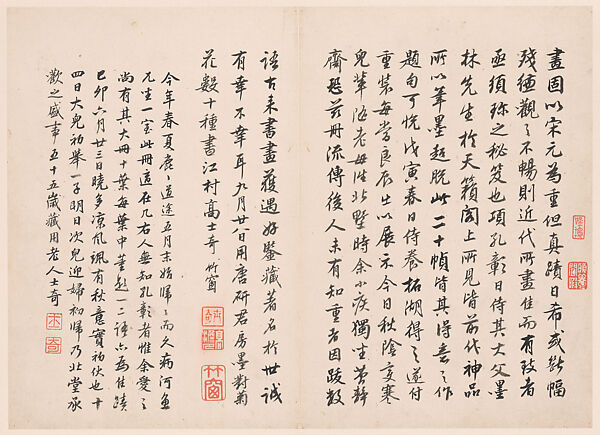 畫固以宋元為重但真蹟日希或斷幅
殘縑觀之不暢則近代所畫佳而有致者
亟須珍之秘笈也項孔彰日侍其大父墨
林先生於天籟閣上所見皆前代神品
所以筆墨超脫此二十幀皆其得意之作
題句可悅戊寅春日侍養柘湖得之遂付
重裝每當良辰出以展示今日秋陰變寒
兒輩侍老母往北墅時余小疾獨坐簡靜
齋恐茲冊流傳後人未有知重者因跋數
語古來書畫獲遇好鑒藏著名於世誠
有幸不幸耳九月廿八日用唐研君房墨對菊
花數十種書江村高士奇 竹窗
今年春夏屢屢道途五月末始歸歸而久病河魚
兀坐一室此冊適在几右人無知孔彰者惟余愛之
尚有其大冊十葉每葉中董題一二種亦為佳蹟
己卯六月廿三日曉多涼風颯有秋意實初伏也廿
四日大兒初舉一子明日次兒迎婦初歸乃北堂承
歡之盛事五十五歲藏用老人士奇
竹窗
士奇